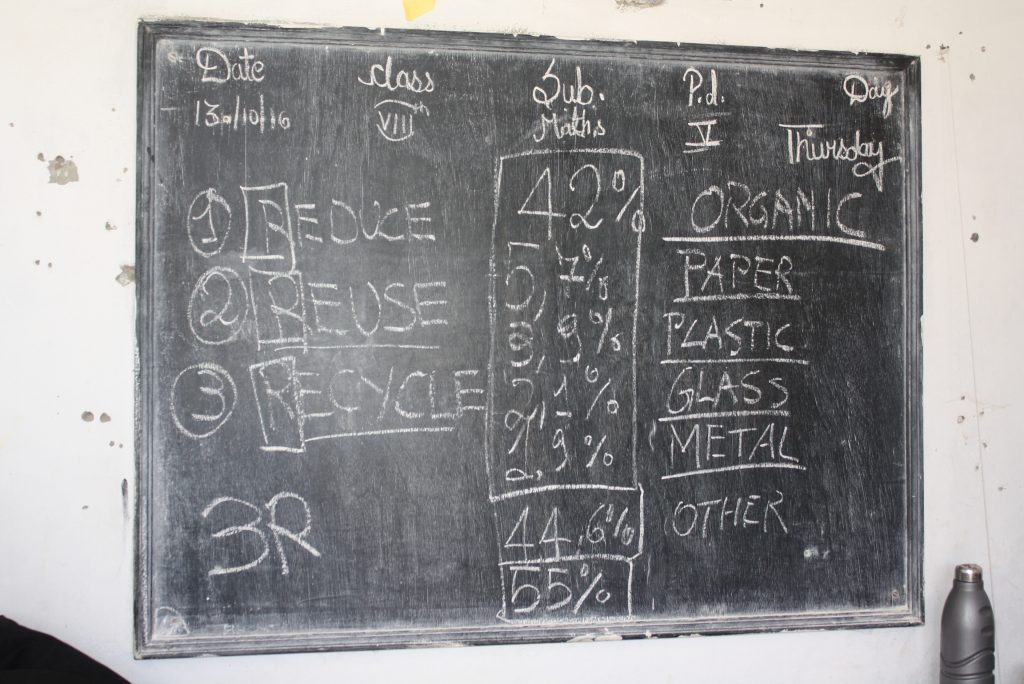 Date class Sub. P.d. Day
13/10/16 VIIIth Maths V Thursday
① REDUCE 42% ORGANIC
② REUSE 5,7% PAPER
3,9% PLASTIC
③ RECYCLE 2,1% GLASS
2,9% METAL
3R 44,6% OTHER
55%